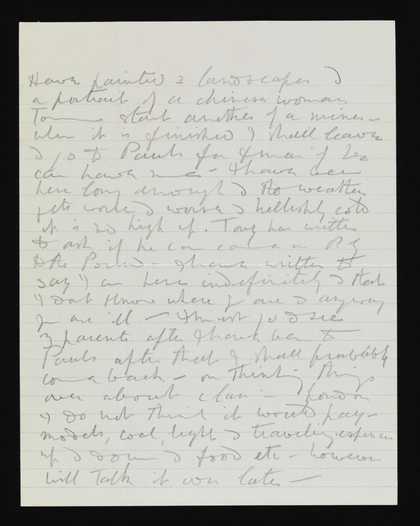 Have painted 2 landscapes &
a portrait of a chinese woman
Tom— start another of a miner—
when it is finished I shall leave
& go to Pauls for Xmas if he
can have me— I have been
here long enough & the weather
gets worse & worse & hellishly cold
it is so high up. Tony has written
to ask if he can come as P.G
I have written to
say I am here indefinitely & that
I dont know where you are & anyway
you are ill— I must go & see
parents after I have been to
Pauls after that I shall probably
come back— on Thinking things
over about class in London
I do not Think it would pay—
models, coal, light & traveling expenses
up & down & food etc— however
will Talk it over later—